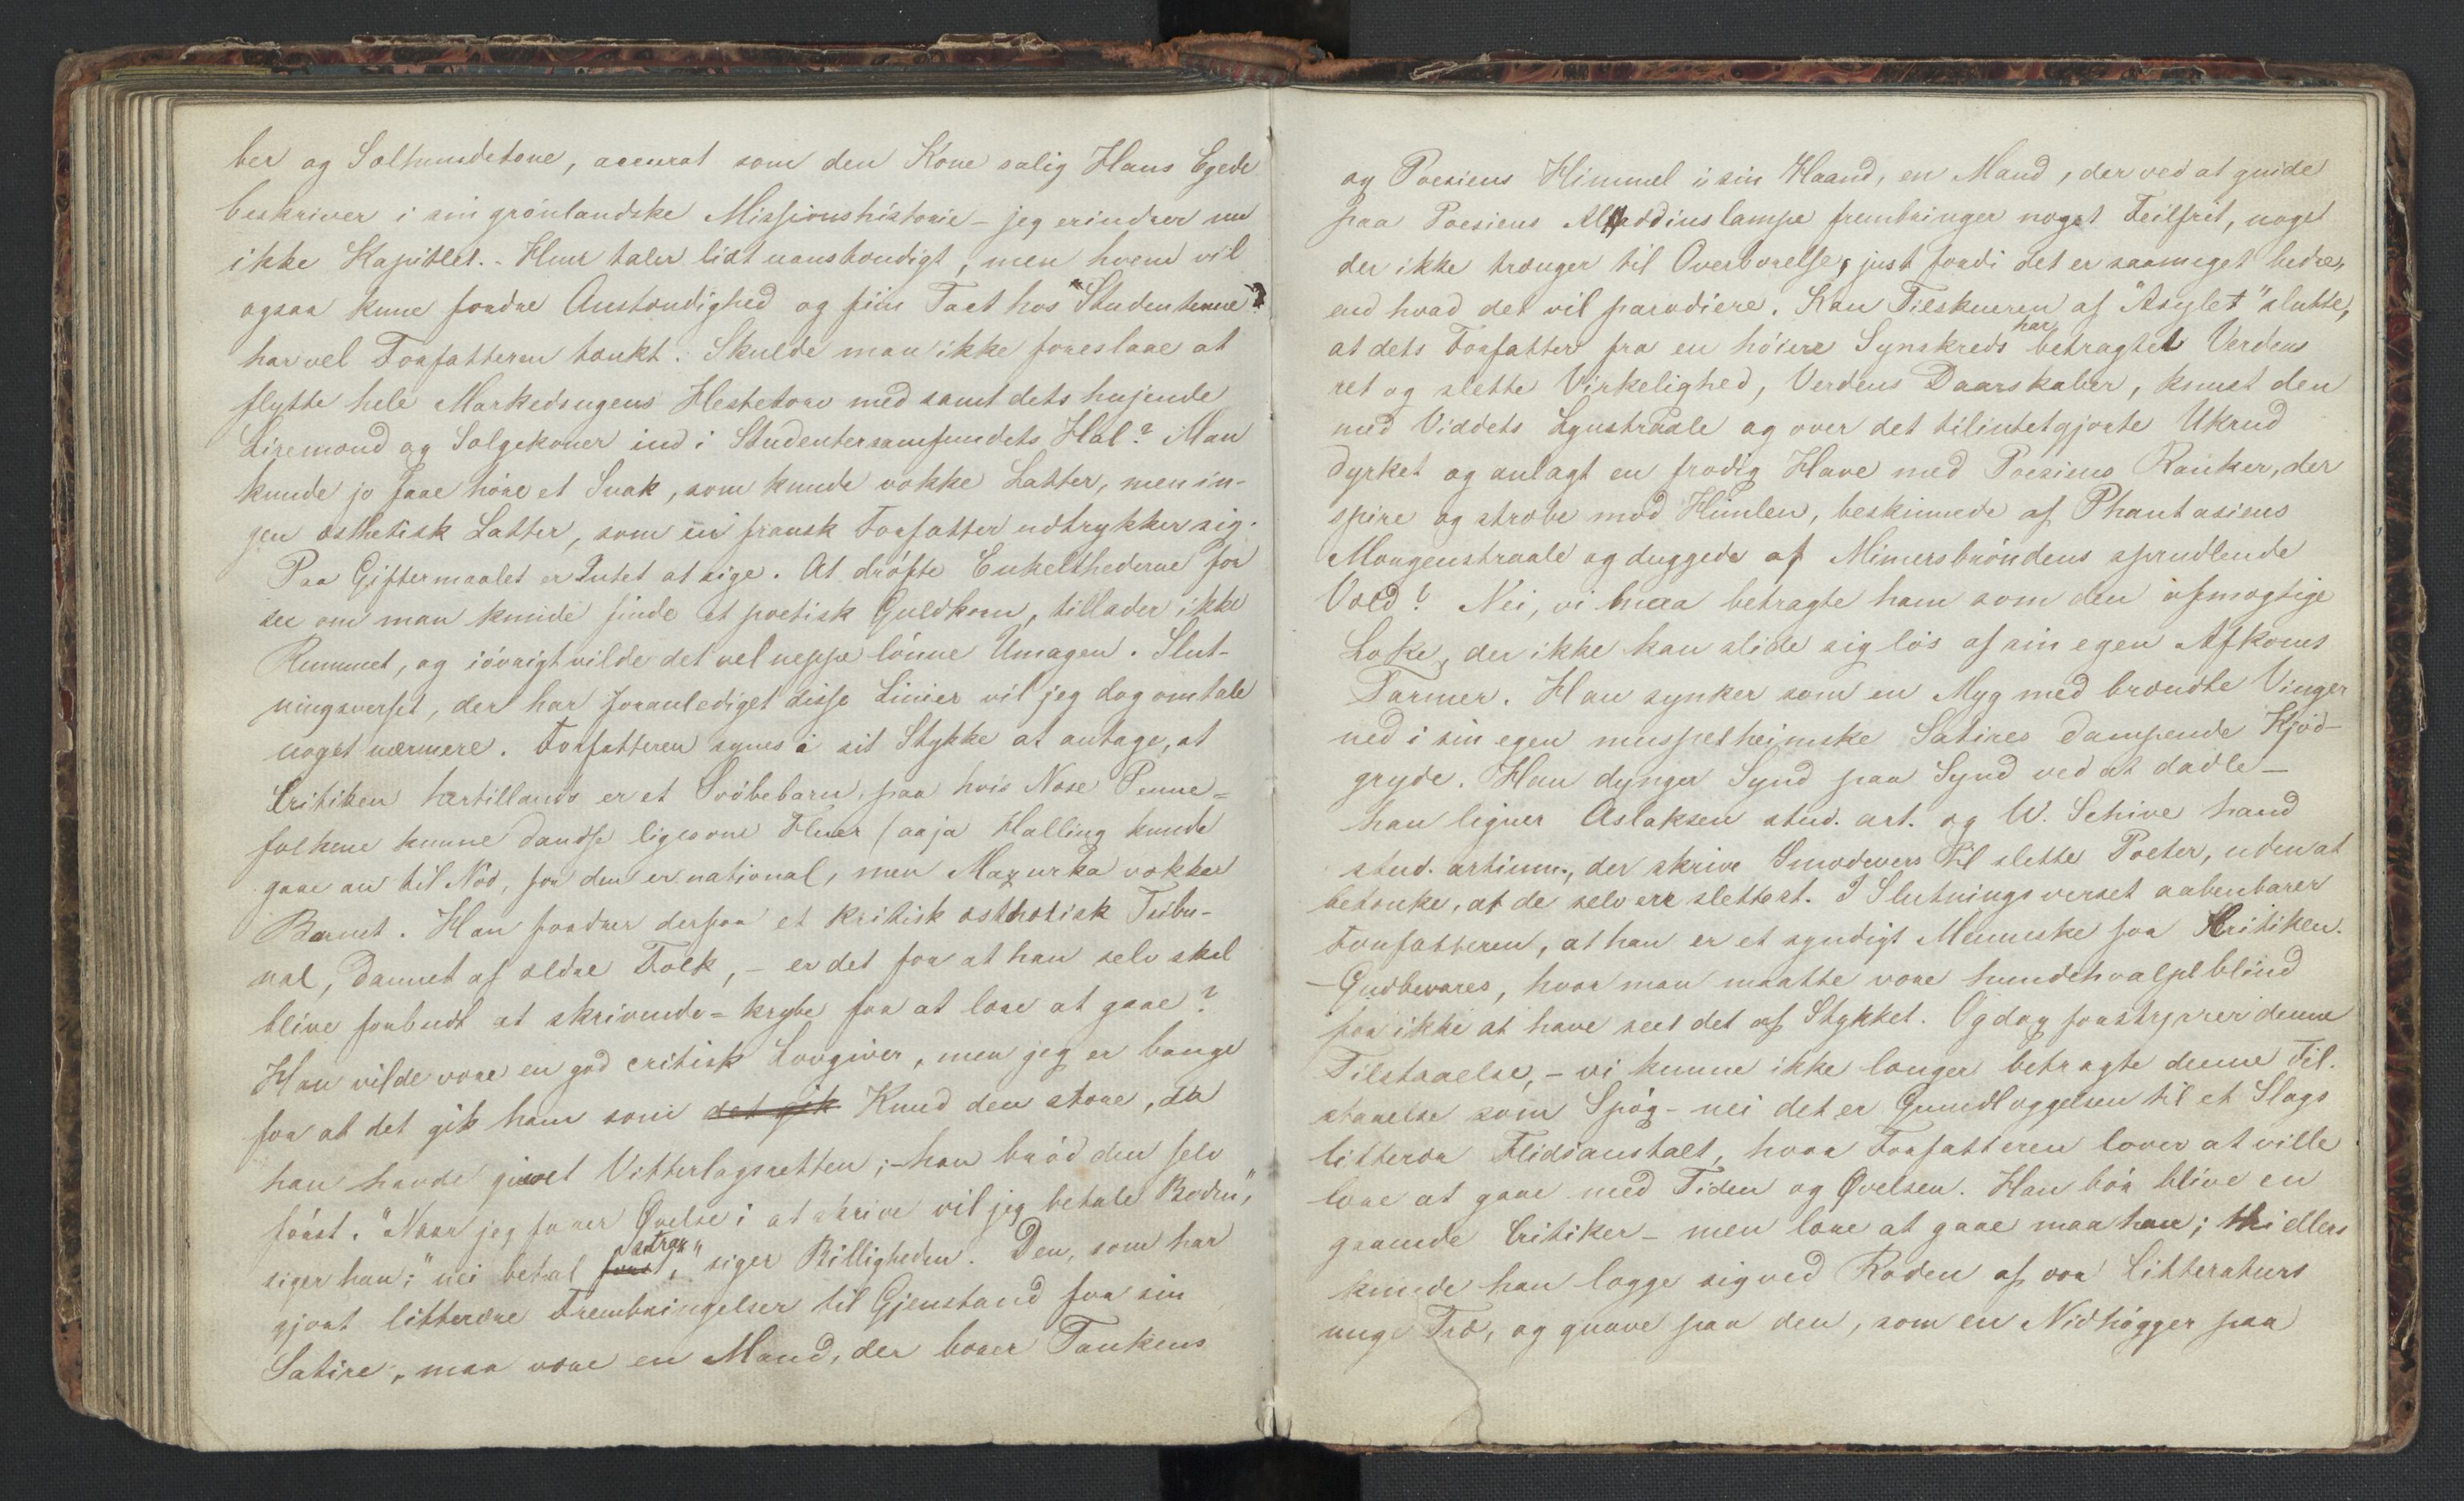 ber og Sælhundetone, accurat som den Kone salig Hans Egede
beskriver i sin grönlandske Missionshistorie – jeg erindrer nu
ikke Kapitlet. – Hun taler lidt uanstændigt, men hvem vil
ogsaa kunne fordre Anstændighed og fiin Tact hos "Studenterne"?
har vel Forfatteren tænkt. Skulde man ikke foreslaae at
flytte hele Markedsugens Hestetorv med samt dets hujende
Liremænd og Sælgekoner ind i Studentersamfundets Hal? Man
kunde jo faae höre et Snak, som kunde vække Latter, men in-
gen æsthetisk Latter, som en fransk Forfatter udtrykker sig.
Paa Giftermaalet er Intet at sige. At dröfte Enkelthederne for
see om man kunde finde et poetisk Guldkorn, tillader ikke
Rummet, og iövrigt vilde det vel neppe lönne Umagen. Slut-
ningsverset, der har foranlediget disse Linier vil jeg dog omtale
noget nærmere. Forfatteren synes i sit Stykke at antage, at
Critiken hertillands er et Svöbebarn, paa hvis Næse Penne-
folkene kunne dandse ligesom Fluer (aa ja Halling kunde
gaae an til Nöd, for den er national, men Mazurka vækker
Barnet. Han fordrer derfor et kritisk æsthetisk Tribu-
nal, dannet af ældre Folk, – er det for at han selv skal
blive forbudt at skrivende-krybe for at lære at gaae?
Han vilde være en god critisk Lovgiver, men jeg er bange
for at det gik ham som det gik Knud den store, da
han havde givet Vitterlagsretten; – han bröd den selv
först. "Naar jeg faaer Øvelse i at skrive vil jeg betale Boden",
siger han; "nei betal först, strax" siger Billigheden. Den, som har
gjort litterære Frembringelser til Gjenstand for sin
Satire, maa være en Mand, der bærer Tankens
og Poesiens Himmel i sin Haand, en Mand, der ved at gnide
paa Poesiens Aladdinslampe frembringer noget Feilfrit, noget
der ikke trænger til Overbærelse, just fordi det er saameget bedre,
end hvad det vil parodiere. Kan Tilskueren af "Asylet" slutte,
at dets Forfatter fra en höiere Synskreds har betragtet Verdens
ret og slette Virkelighed, Verdens Daarskaber, knust den
med Viddets Lynstraale og over det tilintetgjorte Ukrud
dyrket og anlagt en frodig Have med Poesiens Ranker, der
spire og stræbe mod Himlen, beskinnede af Phantasiens
Morgenstraale og duggede af Mimersbröndens sprudlende
Væld? Nei, vi maa betragte ham som den afmægtige
Loke, der ikke kan slide sig lös af sin egen Afkoms
Tarmer. Han synker som en Myg med brændte Vinger
ned i sin egen muspelheimske Satires dampende Kjöd-
gryde. Han dynger Synd paa Synd ved at dadle –
han ligner Aslaksen stud. art. og W. Schive hand
stud. artium., der skrive Smædevers til slette Poeter, uden at
betænke, at de selv ere slettest. I Slutningsverset aabenbarer
Forfatteren, at han er et syndigt Menneske for Kritiken.
– Gudbevares, hvor man maatte være hundehvalpblind
for ikke at have seet det af Stykket. Og dog forstyrrer denne
Tilstaaelse, – vi kunne ikke længer betragte denne Til-
staaelse som Spög – nei det er Grundlæggelsen til et Slags
litterær Flidsanstalt, hvor Forfatteren lover at ville
lære at gaae med Tiden og Øvelsen. Han bör blive en
gaaende Critiker – men lære at gaae maa han; thi ellers
kunde han lægge sig ved Roden af vor Litteraturs
unge Træ, og gnave paa den, som en Nidhögger paa